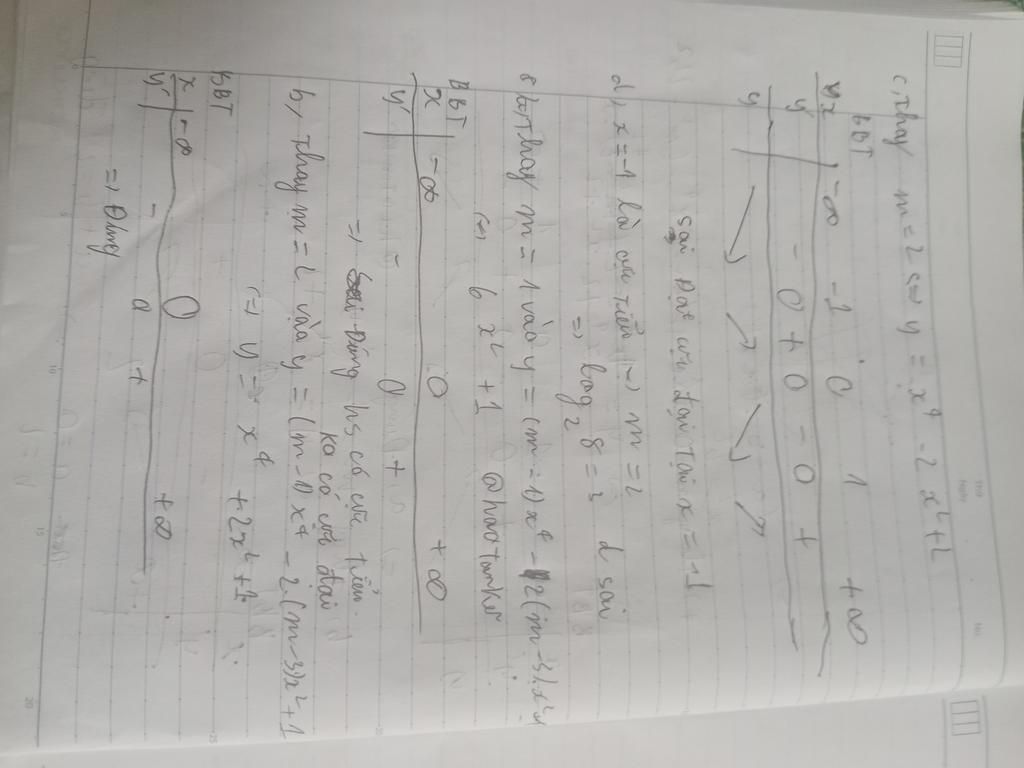 Thứ
Ngày
No.
c, Thay m=2 <=> y = x⁴ - 2x²+2
BBT
x | -∞ -1 0 1 +∞
y' | - 0 + 0 - 0 +
y | ↘ ↗ ↘ ↗
sai Đạt cực đại tại x = -1
d, x = -1 là cực tiểu <=> m = 2
=> log₂ 8 = 3 d sai
8 a, Thay m = 1 vào y = (m-1)x⁴ - 2(m-3)x²+1
<=> 6x² + 1
BBT
x | -∞ 0 +∞
y' | - 0 +
=> Đúng hs có cực tiểu
ko có cực đại
b, Thay m = 2 vào y = (m-1)x⁴ - 2(m-3)x²+1
<=> y = x⁴ + 2x² + 1
BBT
x | -∞ 0 +∞
y' | - 0 +
=> Đúng
5
10
15
20